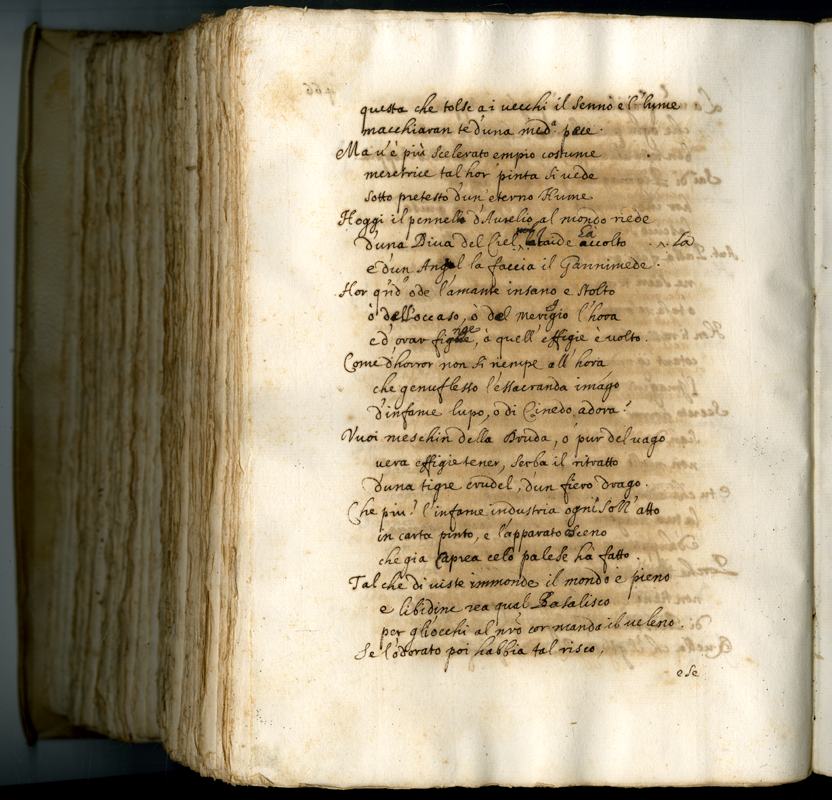 questa che tolse ai vecchi il senno e'l lume
macchiaran te d'una med.ª pece.
Ma v'è più scelerato empio costume
meretrice tal hor pinta si vede
sotto pretesto d'un eterno Nume
Hoggi il pennello d'Aurelio al mondo riede
d'una Diva del Ciel, accolto La
e d'un Angel la faccia il Gannimede.
Hor qñdo ode l'amante insano e stolto
ò dell'occaso, ò del merigio l'hora
ed'orar finge, à quell'effigie è volto.
Come d'horror non si riempe all'hora
che genuflesso l'essacranda imago
d'infame lupo, o di Cinedo adora?
Vuoi meschin della Druda, ò pur del vago
vera effigie tener, serba il ritratto
d'una tigre crudel, d'un fiero drago.
Che piu? l'infame industria ogni soll'atto
in carta pinto, e l'apparato osceno
che gia Caprea celò palese hà fatto.
Tal che di viste immonde il mondo è pieno
e libidine rea qual Basalisco
per gl'occhi al nr̃o cor manda il veleno.
Se l'odorato poi habbia tal risco,
e se